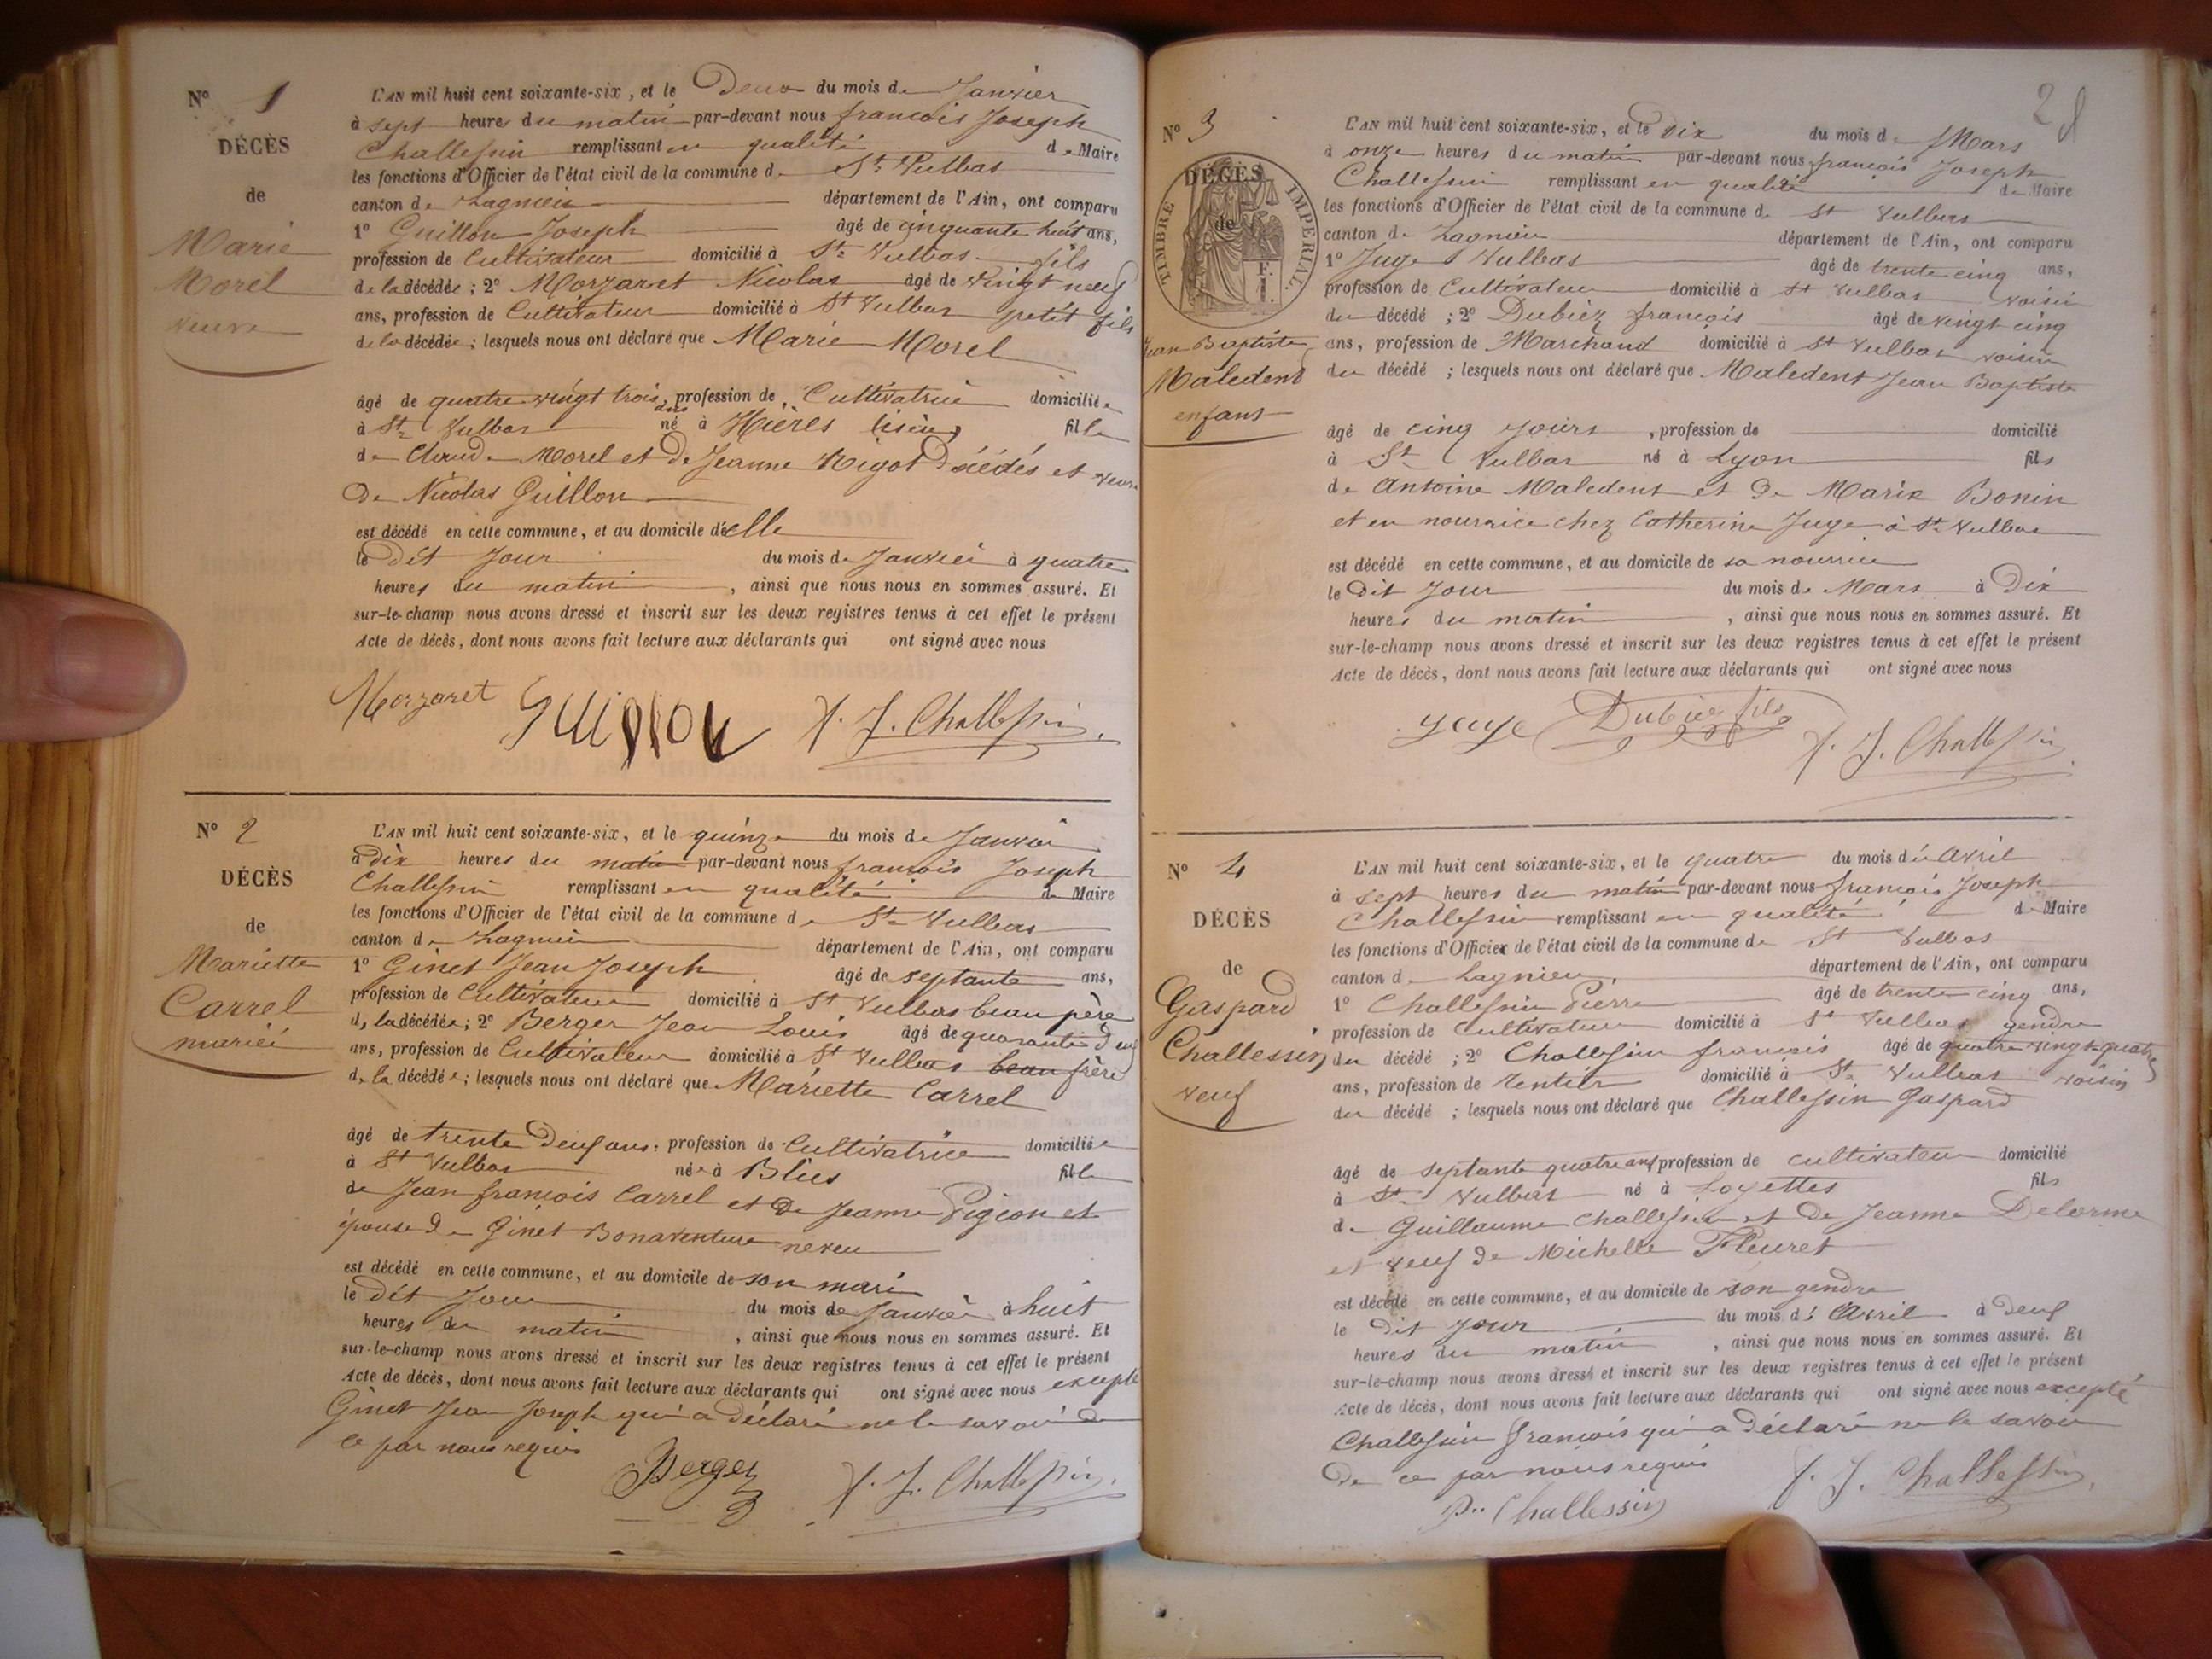 N° 1
DÉCÈS
de
Marie
Morel
veuve
L'AN mil huit cent soixante-six, et le Deux du mois de Janvier
à sept heures du matin par-devant nous françois Joseph
Challessin remplissant en qualité de Maire
les fonctions d'Officier de l'état civil de la commune de St Vulbas
canton de Lagnieu département de l'Ain, ont comparu
1° Guillon Joseph âgé de cinquante huit ans,
profession de Cultivateur domicilié à St Vulbas fils
de la décédée ; 2° Morzaret Nicolas âgé de vingt neuf
ans, profession de Cultivateur domicilié à St Vulbas petit fils
de la décédée ; lesquels nous ont déclaré que Marie Morel
âgé de quatre vingt trois ans, profession de Cultivatrice domiciliée
à St Vulbas né à Hières fille
de Claude Morel et de Jeanne Rigot décédés et veuve
de Nicolas Guillon
est décédé en cette commune, et au domicile d'elle
le dit Jour du mois de Janvier à quatre
heures du matin, ainsi que nous nous en sommes assuré. Et
sur-le-champ nous avons dressé et inscrit sur les deux registres tenus à cet effet le présent
Acte de décès, dont nous avons fait lecture aux déclarants qui ont signé avec nous
Morzaret Guillon f. J. Challessin
N° 2
DÉCÈS
de
Mariette
Carrel
mariée
L'AN mil huit cent soixante-six, et le quinze du mois de Janvier
à dix heures du matin par-devant nous françois Joseph
Challessin remplissant en qualité de Maire
les fonctions d'Officier de l'état civil de la commune de St Vulbas
canton de Lagnieu département de l'Ain, ont comparu
1° Ginet Jean Joseph âgé de septante ans,
profession de Cultivateur domicilié à St Vulbas beau père
de la décédée ; 2° Berger Jean Louis âgé de quarante deux
ans, profession de Cultivateur domicilié à St Vulbas beau frère
de la décédée ; lesquels nous ont déclaré que Mariette Carrel
âgé de trente deux ans, profession de Cultivatrice domiciliée
à St Vulbas née à Blies fille
de Jean françois Carrel et de Jeanne Pigeon et
épouse de Ginet Bonaventure neveu
est décédé en cette commune, et au domicile de son mari
le dit Jour du mois de Janvier à huit
heures du matin, ainsi que nous nous en sommes assuré. Et
sur-le-champ nous avons dressé et inscrit sur les deux registres tenus à cet effet le présent
Acte de décès, dont nous avons fait lecture aux déclarants qui ont signé avec nous excepté
Ginet Jean Joseph qui a déclaré ne le savoir de
ce par nous requis
Berger f. J. Challessin
2
N° 3
DÉCÈS
de
TIMBRE IMPERIAL
F.
1.
Jean Baptiste
Maledent
enfant
L'AN mil huit cent soixante-six, et le dix du mois de Mars
à onze heures du matin par-devant nous françois Joseph
Challessin remplissant en qualité de Maire
les fonctions d'Officier de l'état civil de la commune de St Vulbas
canton de Lagnieu département de l'Ain, ont comparu
1° Juge Vulbas âgé de trente cinq ans,
profession de Cultivateur domicilié à St Vulbas voisin
du décédé ; 2° Dubiez françois âgé de vingt cinq
ans, profession de Marchand domicilié à St Vulbas voisin
du décédé ; lesquels nous ont déclaré que Maledent Jean Baptiste
âgé de cinq jours, profession de domicilié
à St Vulbas né à Lyon fils
de Antoine Maledent et de Marie Bonin
et en nourrice chez Catherine Juge à St Vulbas
est décédé en cette commune, et au domicile de sa nourrice
le dit Jour du mois de Mars à Dix
heures du matin, ainsi que nous nous en sommes assuré. Et
sur-le-champ nous avons dressé et inscrit sur les deux registres tenus à cet effet le présent
Acte de décès, dont nous avons fait lecture aux déclarants qui ont signé avec nous
juge Dubiez fils f. J. Challessin
N° 4
DÉCÈS
de
Gaspard
Challessin
veuf
L'AN mil huit cent soixante-six, et le quatre du mois d'Avril
à sept heures du matin par-devant nous françois Joseph
Challessin remplissant en qualité de Maire
les fonctions d'Officier de l'état civil de la commune de St Vulbas
canton de Lagnieu département de l'Ain, ont comparu
1° Challessin Pierre âgé de trente cinq ans,
profession de Cultivateur domicilié à St Vulbas gendre
du décédé ; 2° Challessin françois âgé de quatre vingt quatre
ans, profession de rentier domicilié à St Vulbas voisin
du décédé ; lesquels nous ont déclaré que Challessin Gaspard
âgé de septante quatre ans profession de cultivateur domicilié
à St Vulbas né à Loyettes fils
de Guillaume Challessin et de Jeanne Delorme
et veuf de Michelle Fleuret
est décédé en cette commune, et au domicile de son gendre
le dit jour du mois d'Avril à deux
heures du matin, ainsi que nous nous en sommes assuré. Et
sur-le-champ nous avons dressé et inscrit sur les deux registres tenus à cet effet le présent
Acte de décès, dont nous avons fait lecture aux déclarants qui ont signé avec nous excepté
Challessin françois qui a déclaré ne le savoir
De ce par nous requis f. J. Challessin
P.. Challessin